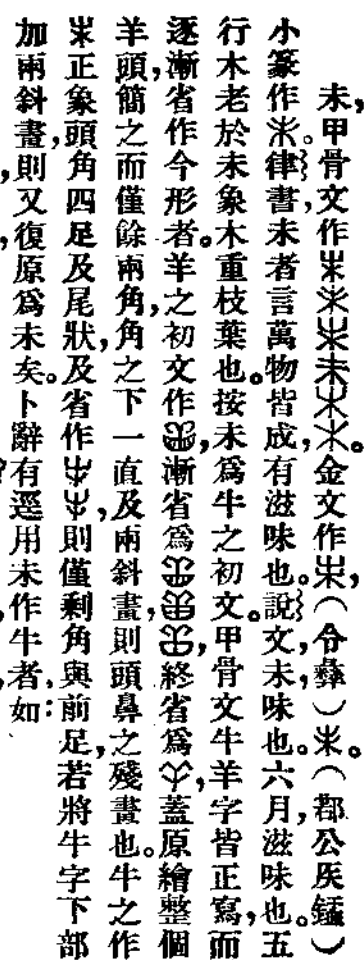 未，甲骨文作。金文作，（令彝）。（鄀公𥎦鍤）
小篆作。律書，未者言萬物皆成，有滋味也。說文，未，味也。六月，滋味也。五
行木老於未象木重枝葉也。按未爲牛之初文。甲骨文牛羊字皆正寫，而
逐漸省作今形者。羊之初文作，漸省爲，終省爲，蓋原繪整個
羊頭，簡之而僅餘兩角，角之下一直及兩斜畫，則頭鼻之殘畫也。牛之作
正象頭角四足及尾狀，及省作，則僅剩角與前足，若將牛字下部
加兩斜畫，則又復原爲未矣。卜辭有逕用未作牛者，如：